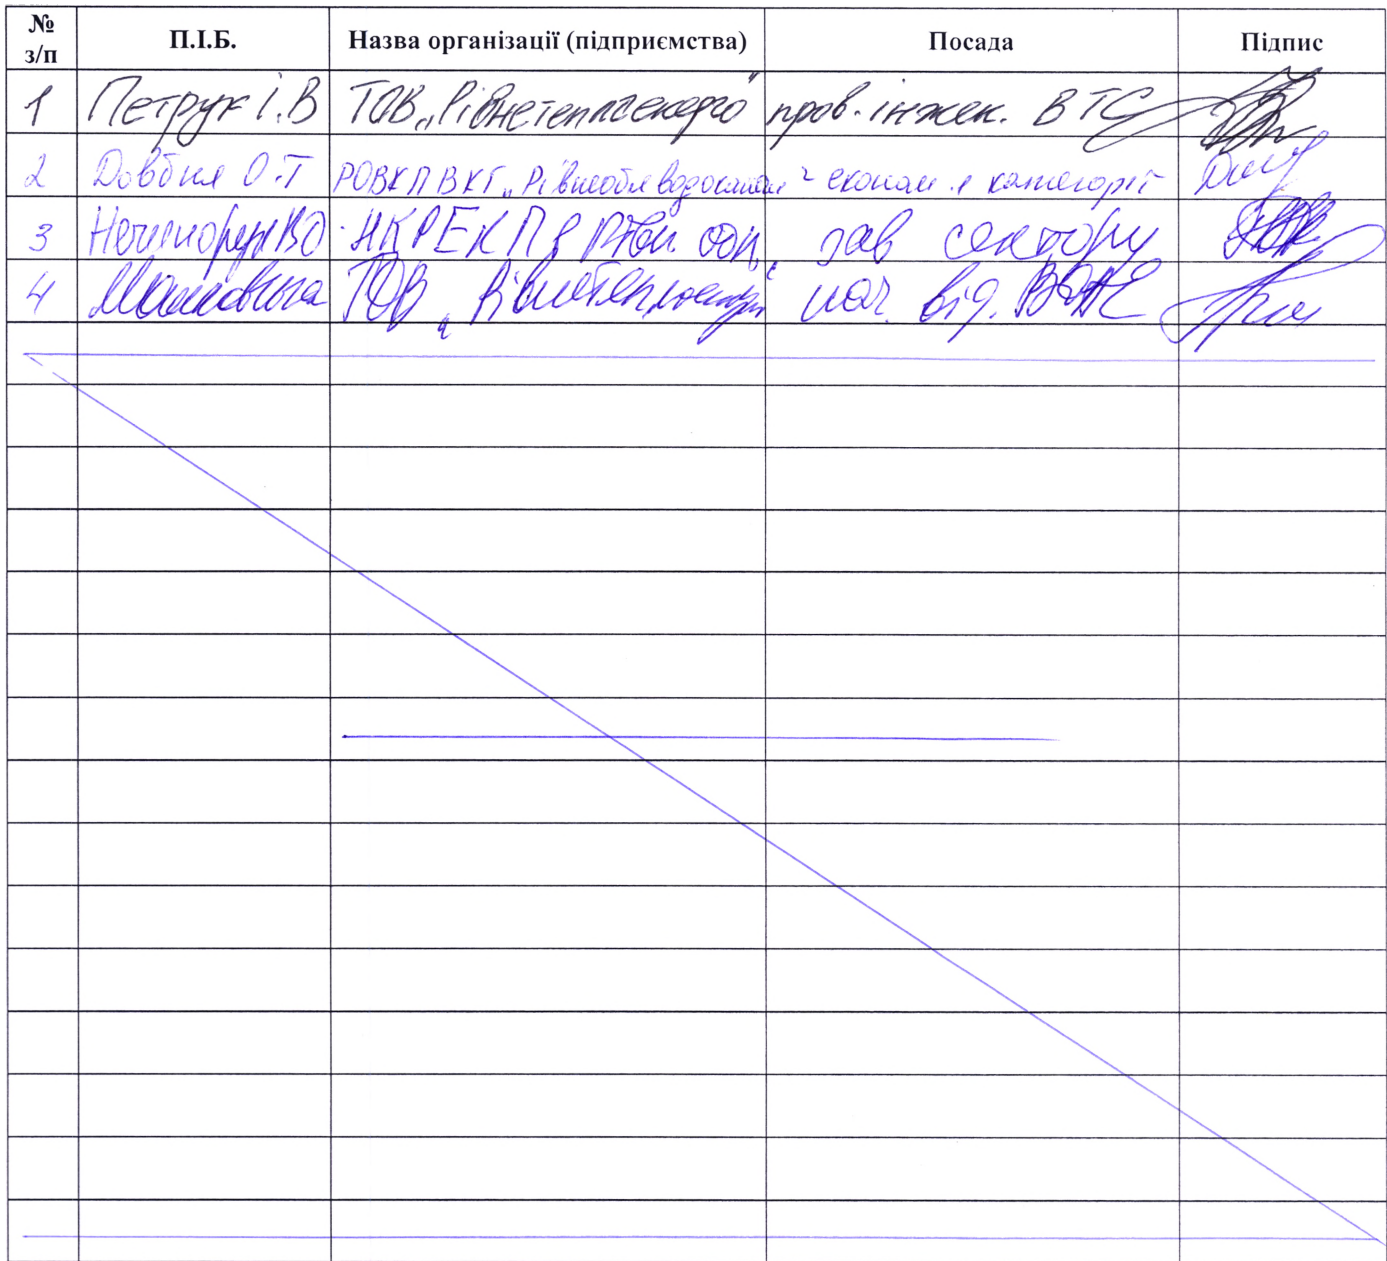 № з/п П.І.Б. Назва організації (підприємства) Посада Підпис
1 Петрук І.В ТОВ „Рівнетеплоенерго" пров. інжен. ВТС
2 Довбня О.Т РОВКП ВКГ „Рівнеоблводоканал" економ. категорії
3 НКРЕКП зав сектору
4 ТОВ „Рівнетеплоенерго нач. від.